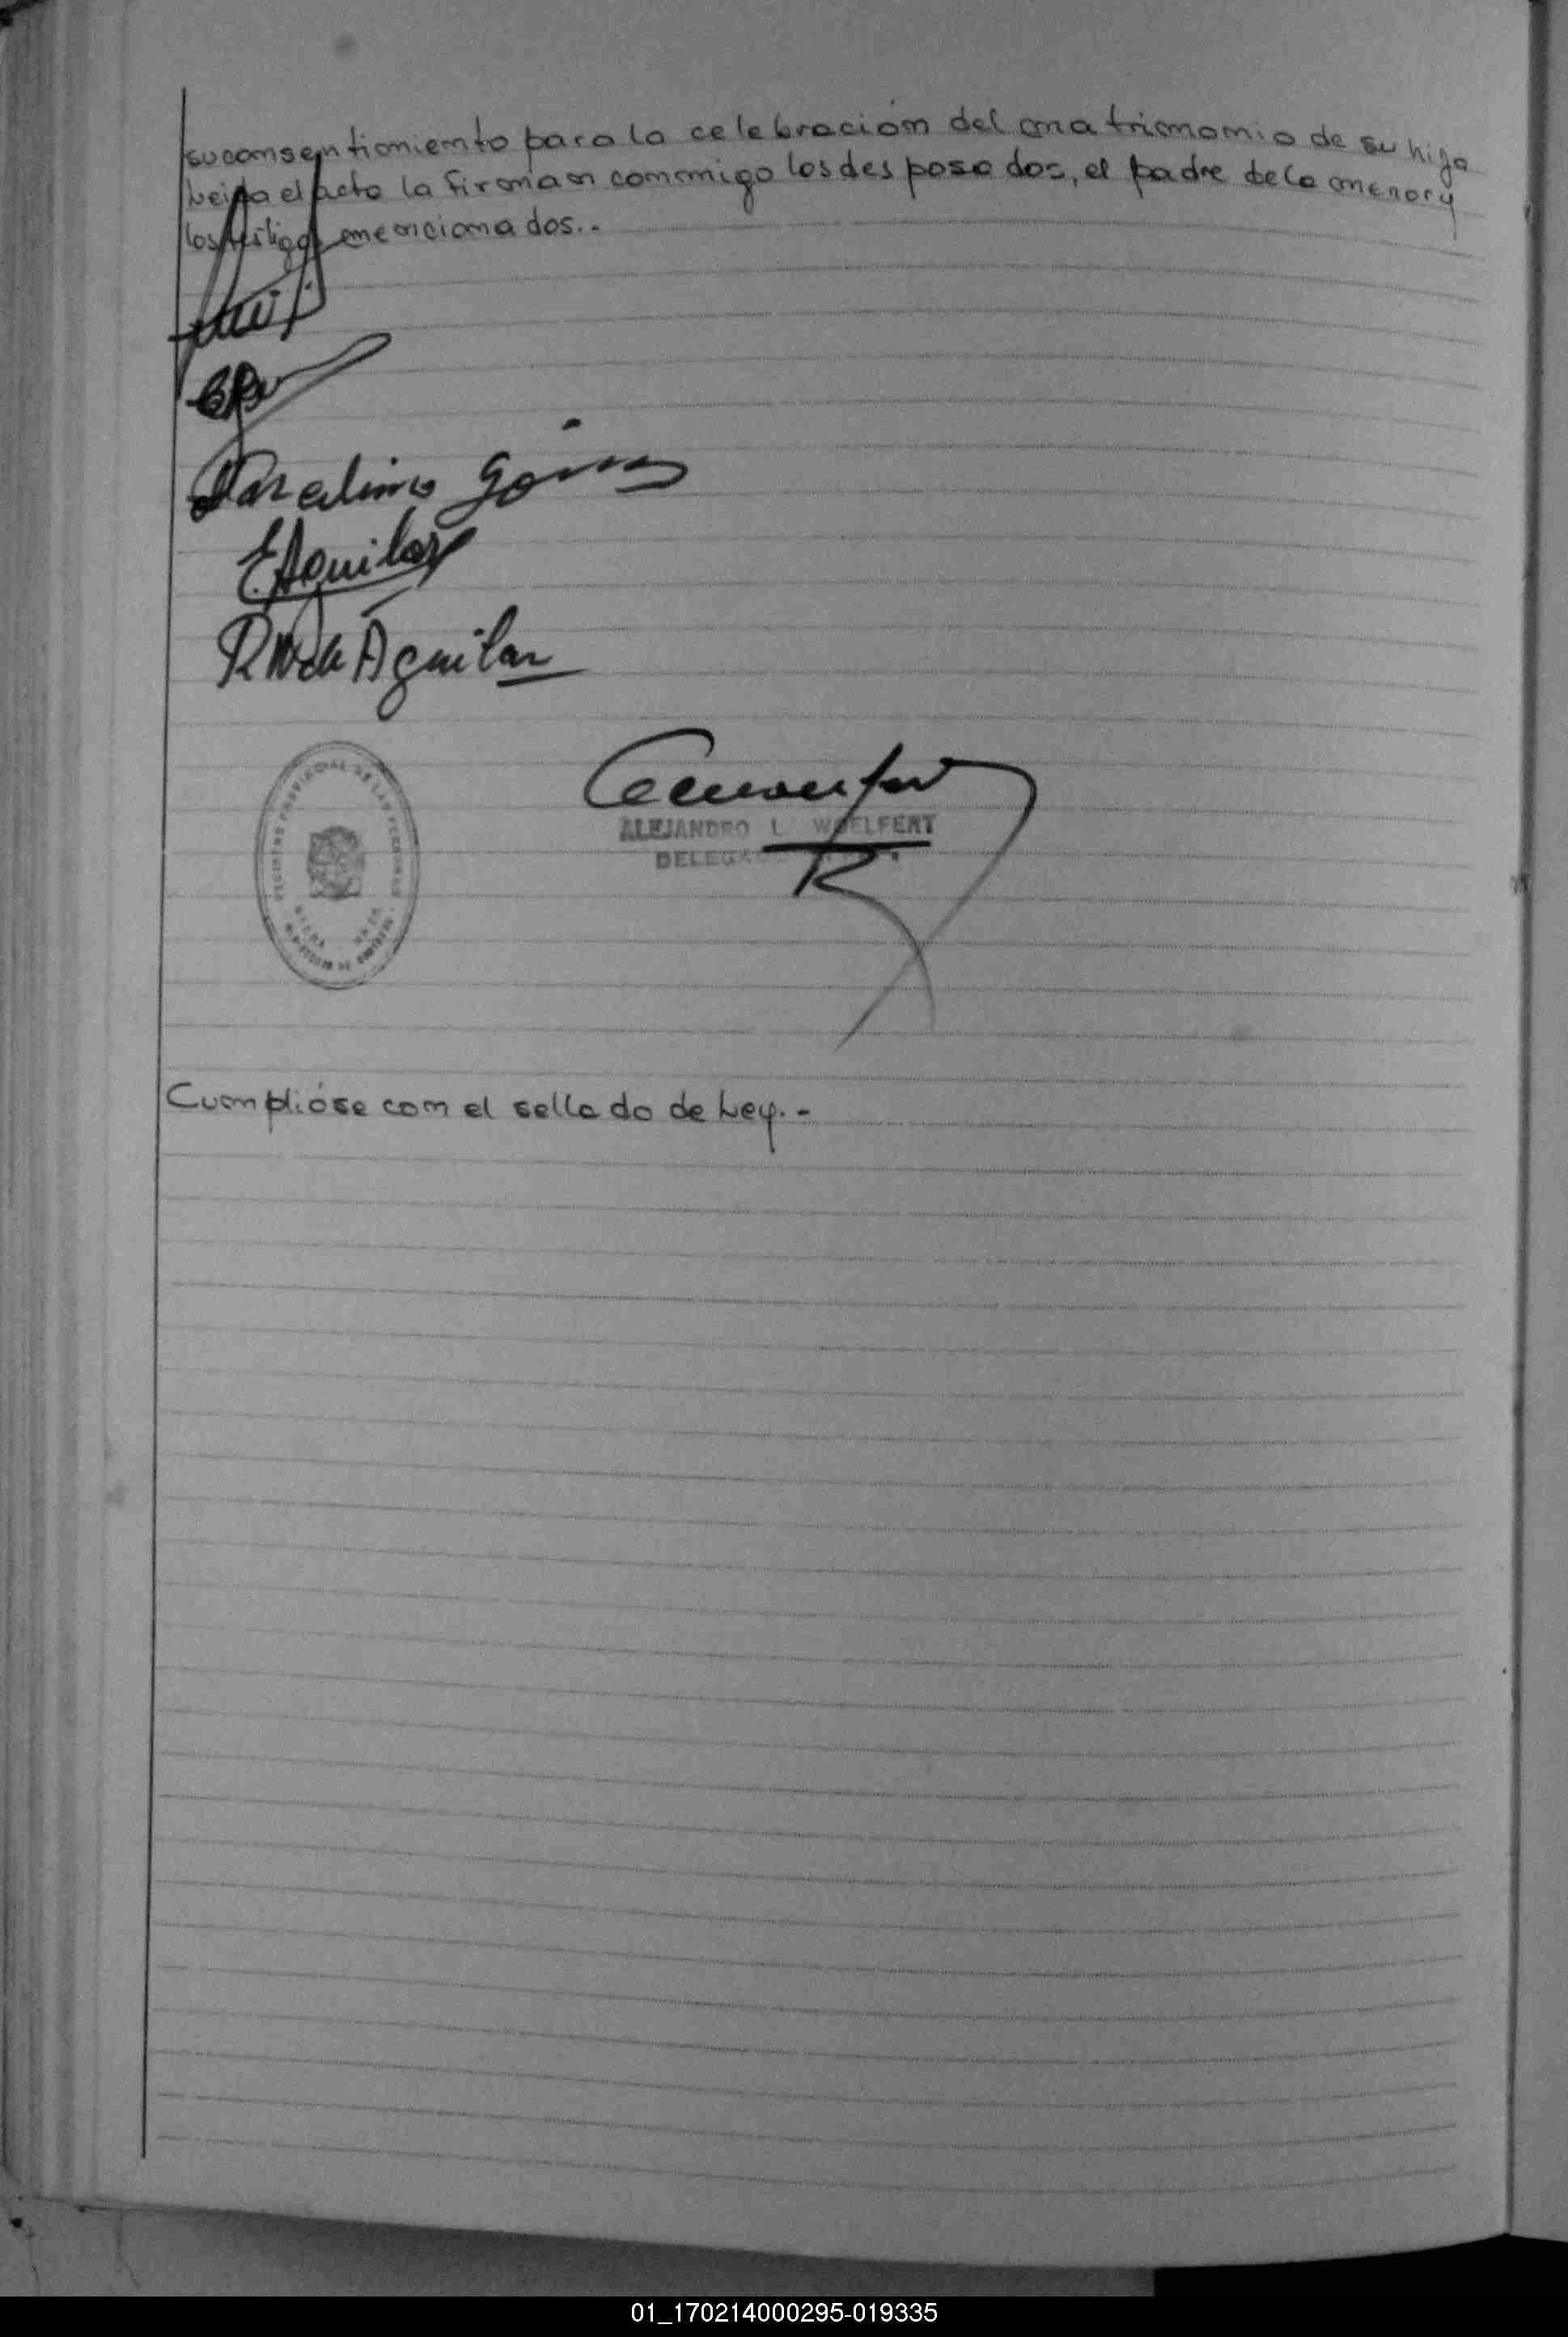 su consentimiento para la celebración del matrimonio de su hija
Leida el acta la firman conmigo los desposados, el padre de la menor y
los testigos mencionados..-
Marcelino Gómez
E. Aguilar
R M de Aguilar
ALEJANDRO L. WOELFERT
DELEGADO
REGISTRO PROVINCIAL DE LAS PERSONAS
Cumplióse con el sellado de Ley.-
01_170214000295-019335